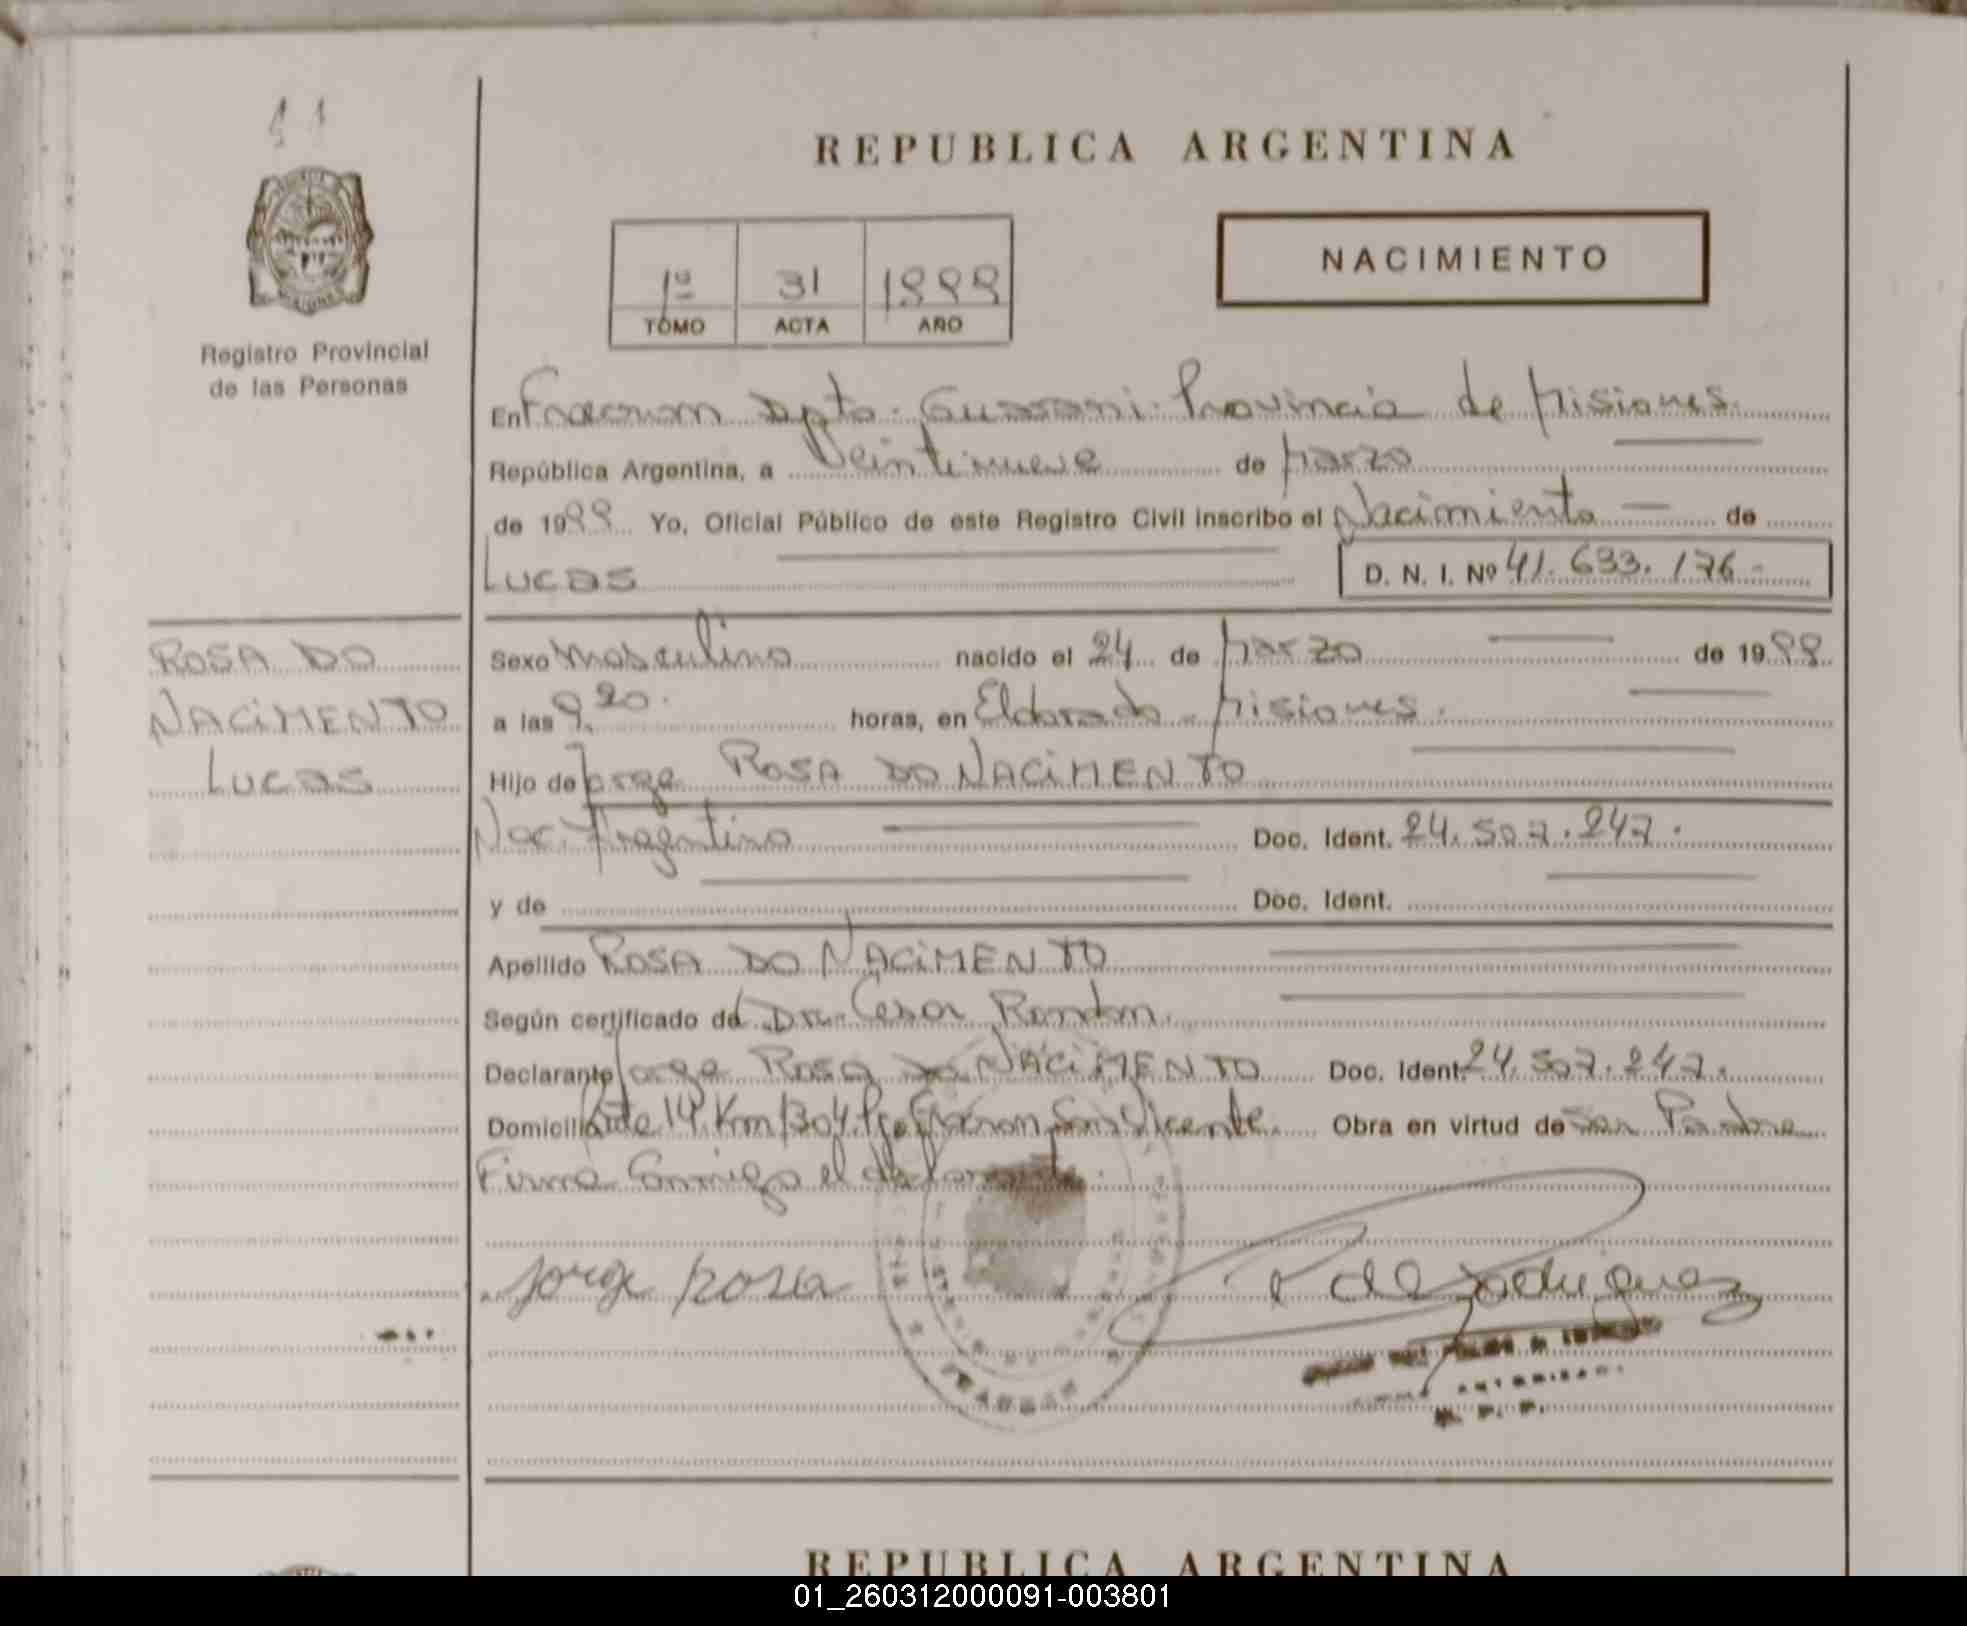 11
REPUBLICA ARGENTINA
NACIMIENTO
1º 31 1999
TOMO ACTA AÑO
Registro Provincial
de las Personas
En Fracrnan Dpto. Guarani. Provincia de Misiones.
República Argentina, a Veintinueve de Marzo
de 1999 Yo, Oficial Público de este Registro Civil inscribo el Nacimiento de
Lucas D. N. I. Nº 41.633.176.
ROSA DO
NACIMENTO
Lucas
Sexo Masculino nacido el 24 de Marzo de 1999
a las 9.20. horas, en Eldorado - Misiones.
Hijo de Jorge ROSA DO NACIMENTO
Nac. Argentino Doc. Ident. 24.507.247.
y de Doc. Ident.
Apellido ROSA DO NACIMENTO
Según certificado de Dr. Cesar
Declarante Jorge ROSA DO NACIMENTO Doc. Ident. 24.507.247.
Domicilio Rta 14 Km 1304 San Vicente. Obra en virtud de ser Padre
Firma Conmigo el declarante.
Jorge Rosa
FRACRAN
R. P. P.
REPUBLICA ARGENTINA
01_260312000091-003801